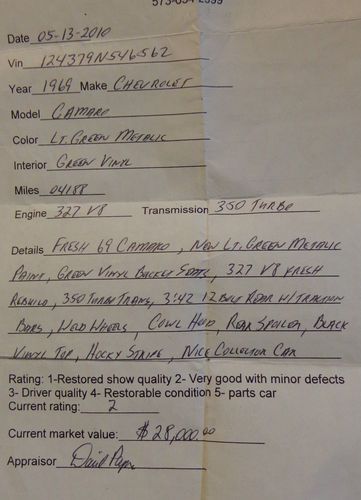 Date 05-13-2010
Vin 124379N546562
Year 1969 Make CHEVROLET
Model CAMARO
Color LT. GREEN METALIC
Interior GREEN VINYL
Miles 04188
Engine 327 V8 Transmission 350 TURBO
Details FRESH 69 CAMARO, NEW LT. GREEN METALIC
PAINT, GREEN VINYL BUCKET SEATS, 327 V8 FRESH
REBUILD, 350 TURBO TRANS, 3:42 12 BOLT REAR W/ TRACTION
BARS, WELD WHEELS, COWL HOOD, REAR SPOILER, BLACK
VINYL TOP, HOCKY STRIPE, NICE COLLECTOR CAR
Rating: 1-Restored show quality 2- Very good with minor defects
3- Driver quality 4- Restorable condition 5- parts car
Current rating: 2
Current market value: $28,000.00
Appraisor David